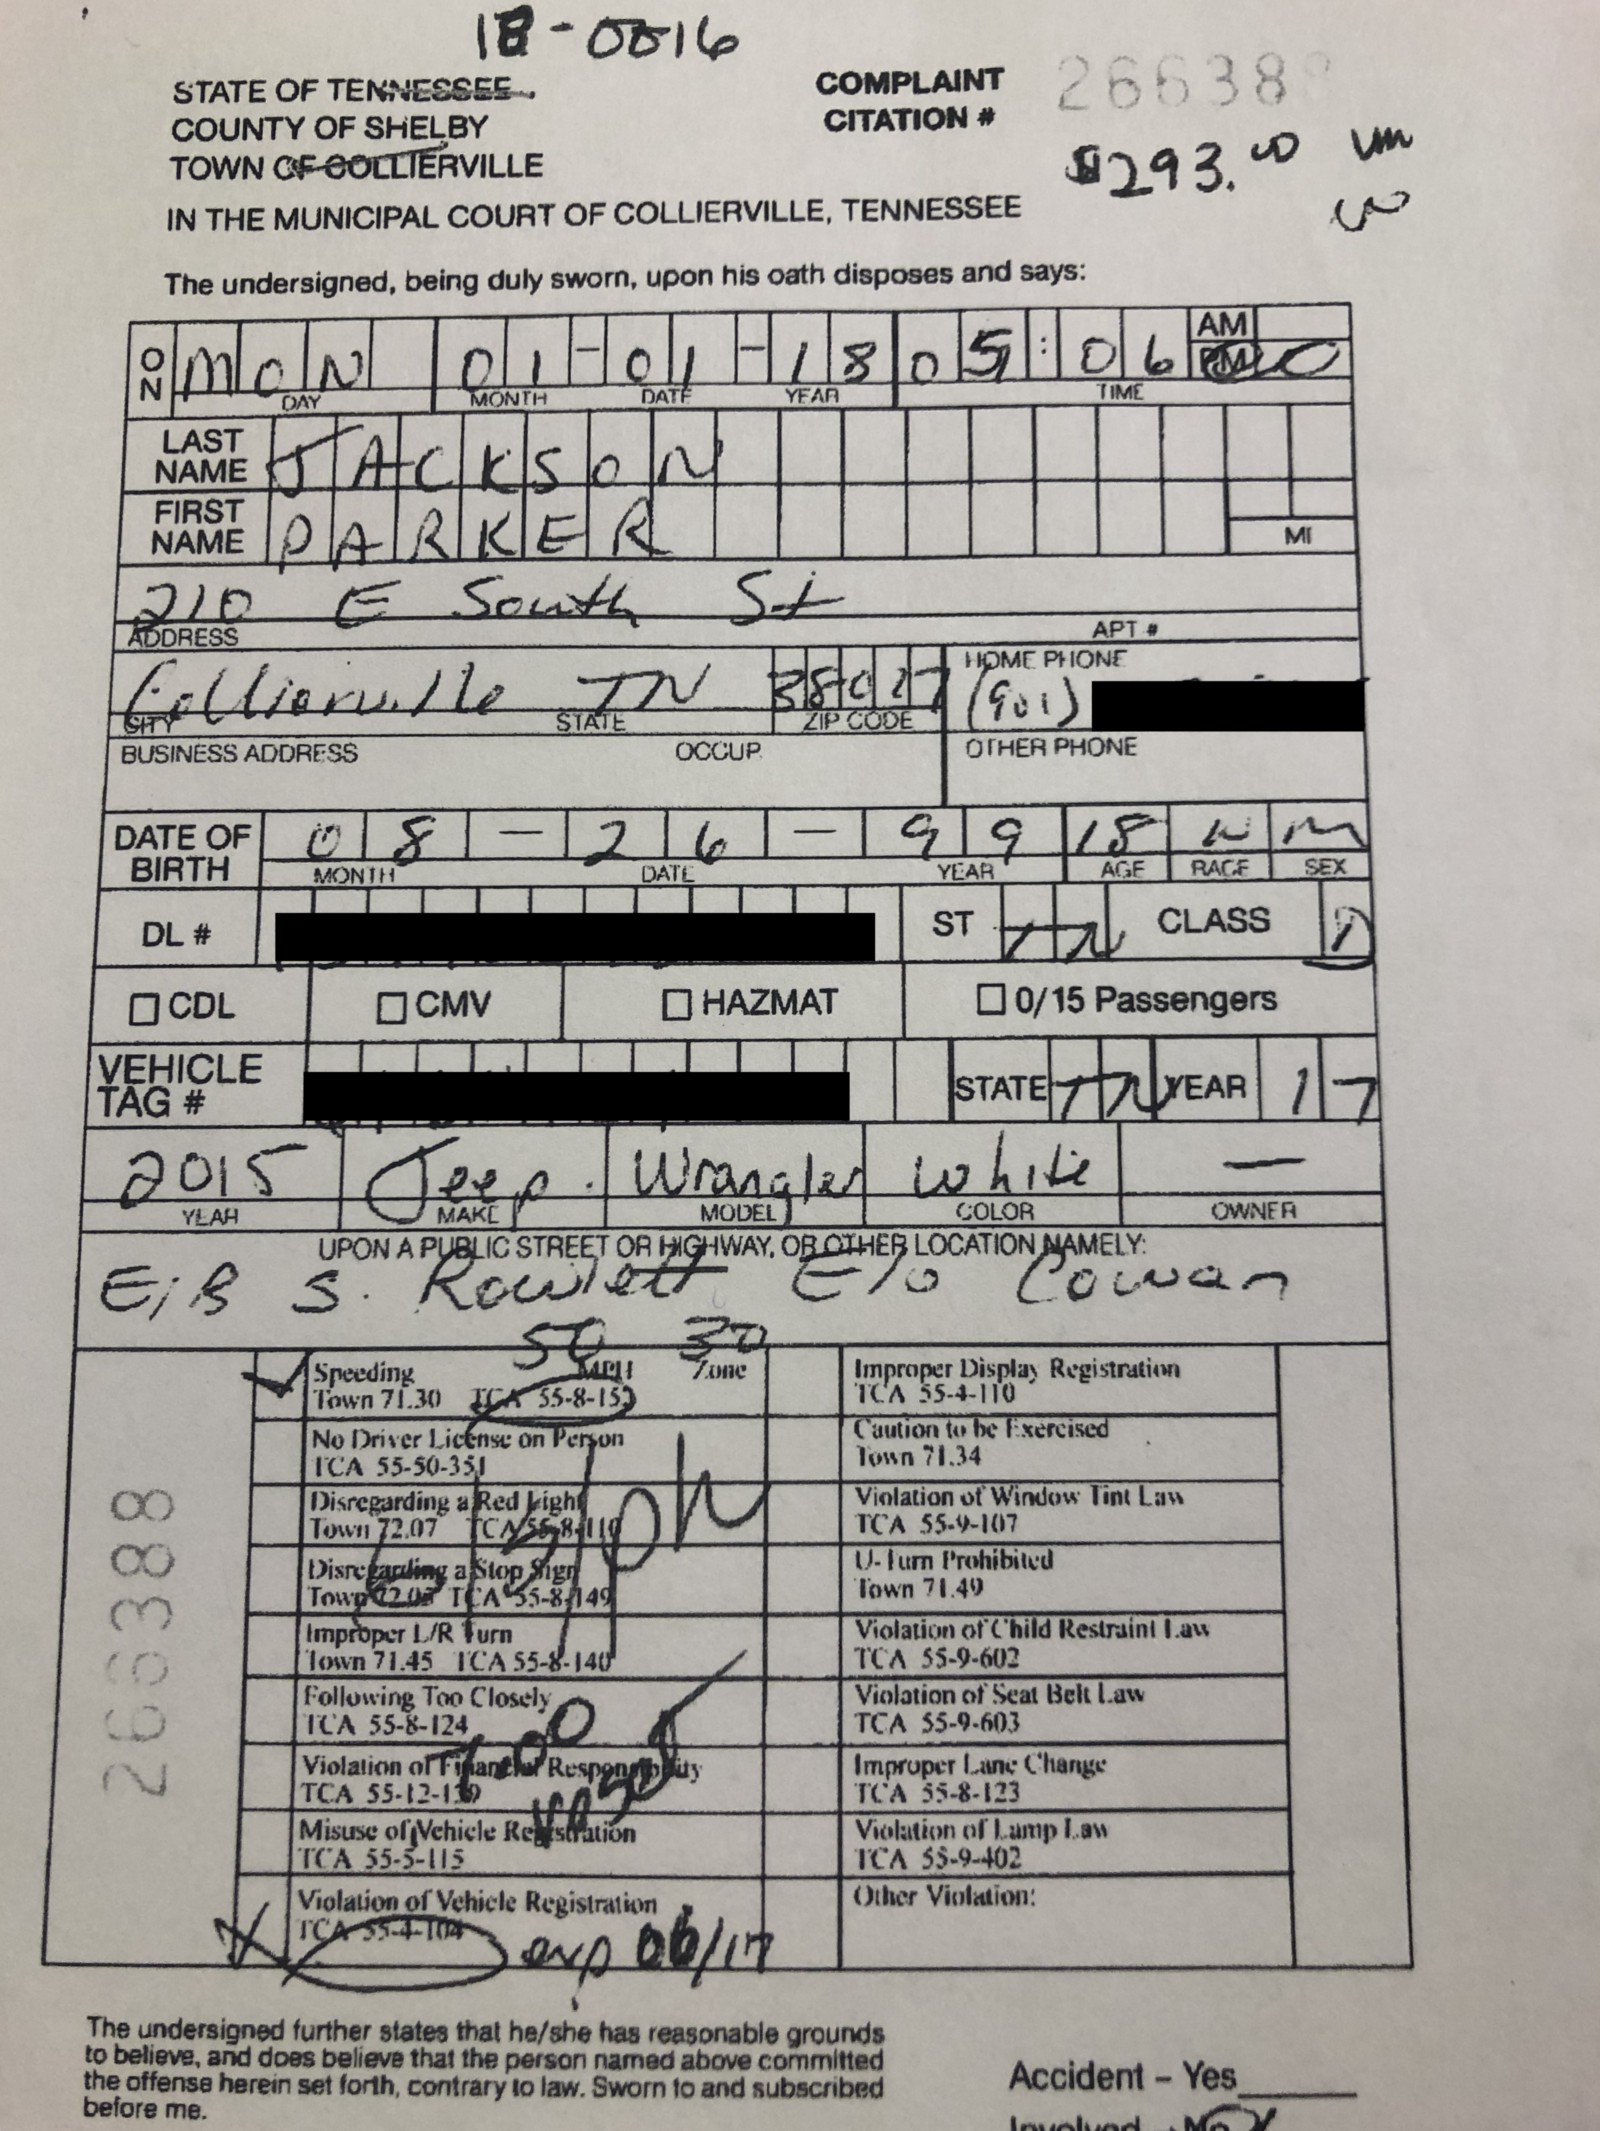 18-0016
STATE OF TENNESSEE
COUNTY OF SHELBY
TOWN OF COLLIERVILLE
COMPLAINT
CITATION # 26638
$293.00
IN THE MUNICIPAL COURT OF COLLIERVILLE, TENNESSEE
The undersigned, being duly sworn, upon his oath disposes and says:
ON MON 01-01-18 05:06 AM PM
DAY MONTH DATE YEAR TIME
LAST NAME JACKSON
FIRST NAME PARKER
MI
210 E South St
ADDRESS APT #
Collierville TN 38017
CITY STATE ZIP CODE
HOME PHONE
(901)
BUSINESS ADDRESS OCCUP. OTHER PHONE
DATE OF BIRTH 08-26-99 18 W M
MONTH DATE YEAR AGE RACE SEX
DL # ST TN CLASS D
CDL CMV HAZMAT 0/15 Passengers
VEHICLE TAG # STATE TN YEAR 17
2015 Jeep Wrangler White —
YEAR MAKE MODEL COLOR OWNER
UPON A PUBLIC STREET OR HIGHWAY, OR OTHER LOCATION NAMELY:
E/B S. Rowlett E/O Cowan
50 30
Speeding MPH Zone
Town 71.30 TCA 55-8-152
No Driver License on Person
TCA 55-50-351
Disregarding a Red Light
Town 72.07 TCA 55-8-110
Disregarding a Stop Sign
Town TCA 55-8-149
Improper L/R Turn
Town 71.45 TCA 55-8-140
Following Too Closely
TCA 55-8-124
Violation of Financial Responsibility
TCA 55-12-139
Misuse of Vehicle Registration
TCA 55-5-115
Violation of Vehicle Registration
TCA 55-4-104
exp 06/17
Improper Display Registration
TCA 55-4-110
Caution to be Exercised
Town 71.34
Violation of Window Tint Law
TCA 55-9-107
U-Turn Prohibited
Town 71.49
Violation of Child Restraint Law
TCA 55-9-602
Violation of Seat Belt Law
TCA 55-9-603
Improper Lane Change
TCA 55-8-123
Violation of Lamp Law
TCA 55-9-402
Other Violation:
266388
The undersigned further states that he/she has reasonable grounds
to believe, and does believe that the person named above committed
the offense herein set forth, contrary to law. Sworn to and subscribed
before me.
Accident – Yes
Involved – No